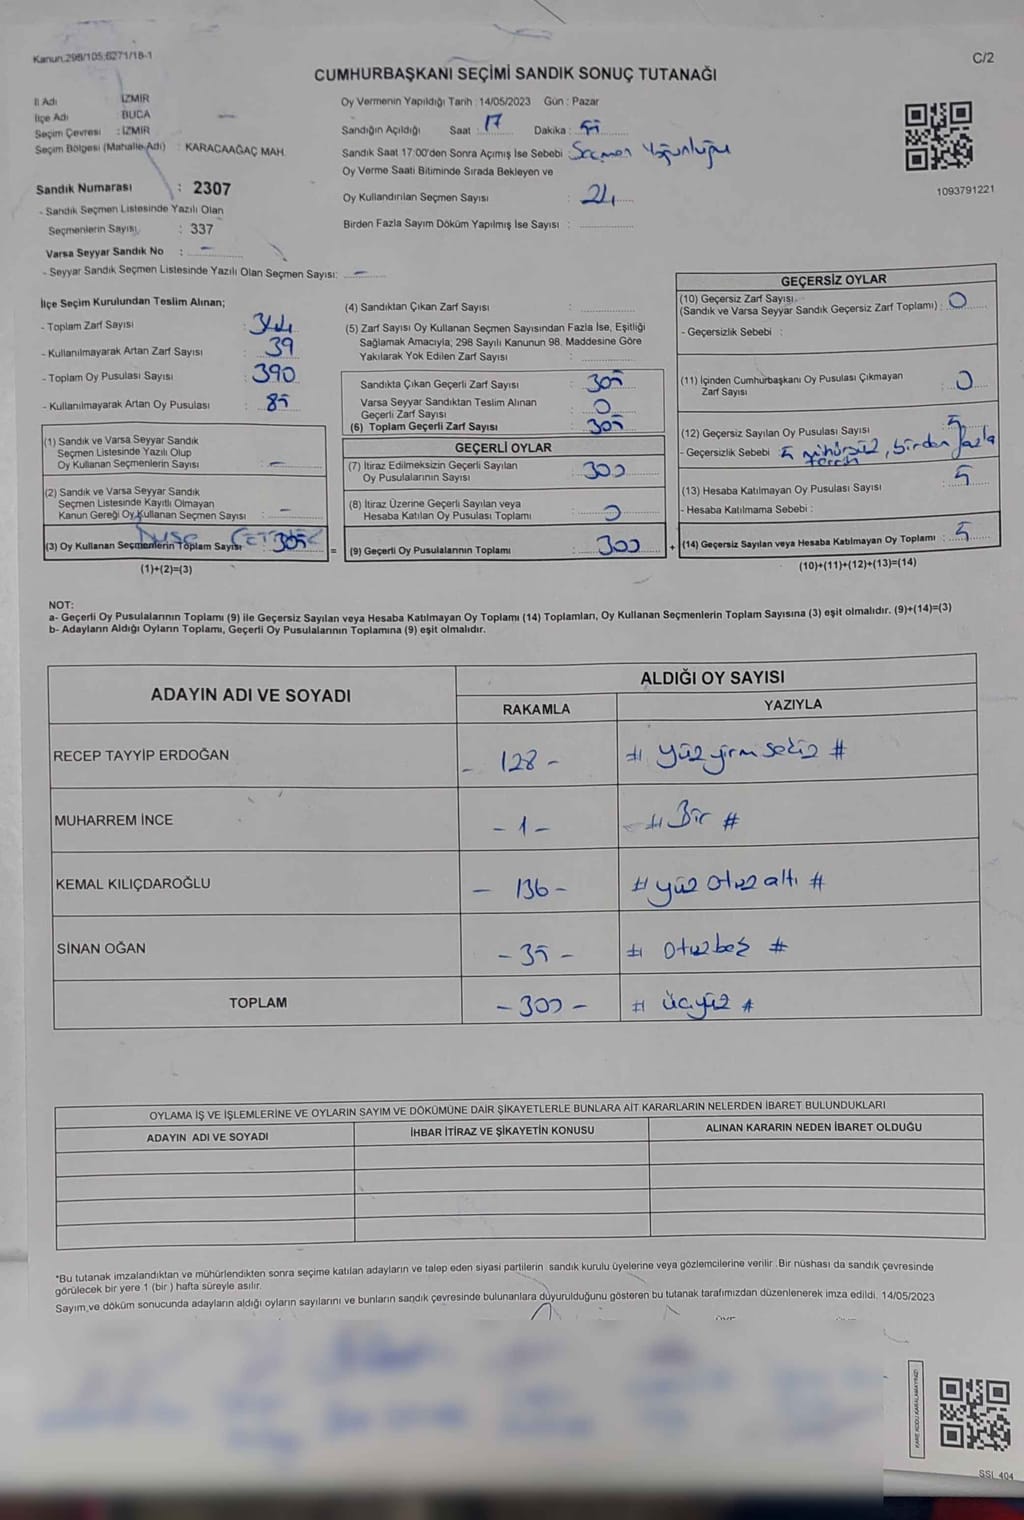 Kanun:298/105;6271/18-1
C/2
CUMHURBAŞKANI SEÇİMİ SANDIK SONUÇ TUTANAĞI
İl Adı : İZMİR
İlçe Adı : BUCA
Seçim Çevresi : İZMİR
Seçim Bölgesi (Mahalle Adı) : KARACAAĞAÇ MAH.
Sandık Numarası : 2307
- Sandık Seçmen Listesinde Yazılı Olan
Seçmenlerin Sayısı : 337
Varsa Seyyar Sandık No : -
- Seyyar Sandık Seçmen Listesinde Yazılı Olan Seçmen Sayısı: -
Oy Vermenin Yapıldığı Tarih : 14/05/2023 Gün : Pazar
Sandığın Açıldığı Saat : 17 Dakika :
Sandık Saat 17:00'den Sonra Açımış İse Sebebi : Seçmen Yoğunluğu
Oy Verme Saati Bitiminde Sırada Bekleyen ve
Oy Kullandırılan Seçmen Sayısı : 24
Birden Fazla Sayım Döküm Yapılmış İse Sayısı :
1093791221
İlçe Seçim Kurulundan Teslim Alınan;
- Toplam Zarf Sayısı : 344
- Kullanılmayarak Artan Zarf Sayısı : 39
- Toplam Oy Pusulası Sayısı : 390
- Kullanılmayarak Artan Oy Pusulası : 85
(1) Sandık ve Varsa Seyyar Sandık
Seçmen Listesinde Yazılı Olup
Oy Kullanan Seçmenlerin Sayısı : -
(2) Sandık ve Varsa Seyyar Sandık
Seçmen Listesinde Kayıtlı Olmayan
Kanun Gereği Oy Kullanan Seçmen Sayısı : -
(3) Oy Kullanan Seçmenlerin Toplam Sayısı : 305
(1)+(2)=(3)
=
(4) Sandıktan Çıkan Zarf Sayısı :
(5) Zarf Sayısı Oy Kullanan Seçmen Sayısından Fazla İse, Eşitliği
Sağlamak Amacıyla; 298 Sayılı Kanunun 98. Maddesine Göre
Yakılarak Yok Edilen Zarf Sayısı :
Sandıkta Çıkan Geçerli Zarf Sayısı : 305
Varsa Seyyar Sandıktan Teslim Alınan
Geçerli Zarf Sayısı : 0
(6) Toplam Geçerli Zarf Sayısı : 305
GEÇERLİ OYLAR
(7) İtiraz Edilmeksizin Geçerli Sayılan
Oy Pusulalarının Sayısı : 300
(8) İtiraz Üzerine Geçerli Sayılan veya
Hesaba Katılan Oy Pusulası Toplamı : 0
(9) Geçerli Oy Pusulalarının Toplamı : 300
+
GEÇERSİZ OYLAR
(10) Geçersiz Zarf Sayısı
(Sandık ve Varsa Seyyar Sandık Geçersiz Zarf Toplamı) : 0
- Geçersizlik Sebebi :
(11) İçinden Cumhurbaşkanı Oy Pusulası Çıkmayan
Zarf Sayısı : 0
(12) Geçersiz Sayılan Oy Pusulası Sayısı : 5
- Geçersizlik Sebebi : 5 mühürsüz, birden fazla
tercih
(13) Hesaba Katılmayan Oy Pusulası Sayısı : 5
- Hesaba Katılmama Sebebi :
(14) Geçersiz Sayılan veya Hesaba Katılmayan Oy Toplamı : 5
(10)+(11)+(12)+(13)=(14)
NOT:
a- Geçerli Oy Pusulalarının Toplamı (9) ile Geçersiz Sayılan veya Hesaba Katılmayan Oy Toplamı (14) Toplamları, Oy Kullanan Seçmenlerin Toplam Sayısına (3) eşit olmalıdır. (9)+(14)=(3)
b- Adayların Aldığı Oyların Toplamı, Geçerli Oy Pusulalarının Toplamına (9) eşit olmalıdır.
ADAYIN ADI VE SOYADI
ALDIĞI OY SAYISI
RAKAMLA YAZIYLA
RECEP TAYYİP ERDOĞAN - 128 - # yüz yirmi sekiz #
MUHARREM İNCE - 1 - # Bir #
KEMAL KILIÇDAROĞLU - 136 - # yüz otuz altı #
SİNAN OĞAN - 35 - # otuzbeş #
TOPLAM - 300 - # üçyüz #
OYLAMA İŞ VE İŞLEMLERİNE VE OYLARIN SAYIM VE DÖKÜMÜNE DAİR ŞİKAYETLERLE BUNLARA AİT KARARLARIN NELERDEN İBARET BULUNDUKLARI
ADAYIN ADI VE SOYADI İHBAR İTİRAZ VE ŞİKAYETİN KONUSU ALINAN KARARIN NEDEN İBARET OLDUĞU
*Bu tutanak imzalandıktan ve mühürlendikten sonra seçime katılan adayların ve talep eden siyasi partilerin sandık kurulu üyelerine veya gözlemcilerine verilir. Bir nüshası da sandık çevresinde
görülecek bir yere 1 (bir ) hafta süreyle asılır.
Sayım,ve döküm sonucunda adayların aldığı oyların sayılarını ve bunların sandık çevresinde bulunanlara duyurulduğunu gösteren bu tutanak tarafımızdan düzenlenerek imza edildi. 14/05/2023
KARE KODU KARALAMAYINIZ!
SSI_404